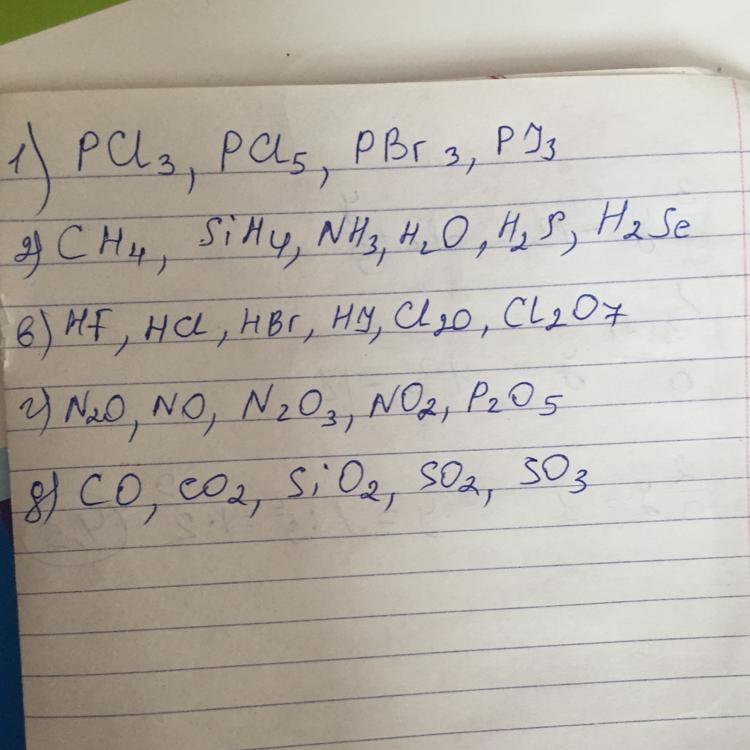 1) PCl₃, PCl₅, PBr₃, PJ₃
2) CH₄, SiH₄, NH₃, H₂O, H₂S, H₂Se
в) HF, HCl, HBr, HJ, Cl₂O, Cl₂O₇
г) N₂O, NO, N₂O₃, NO₂, P₂O₅
д) CO, CO₂, SiO₂, SO₂, SO₃